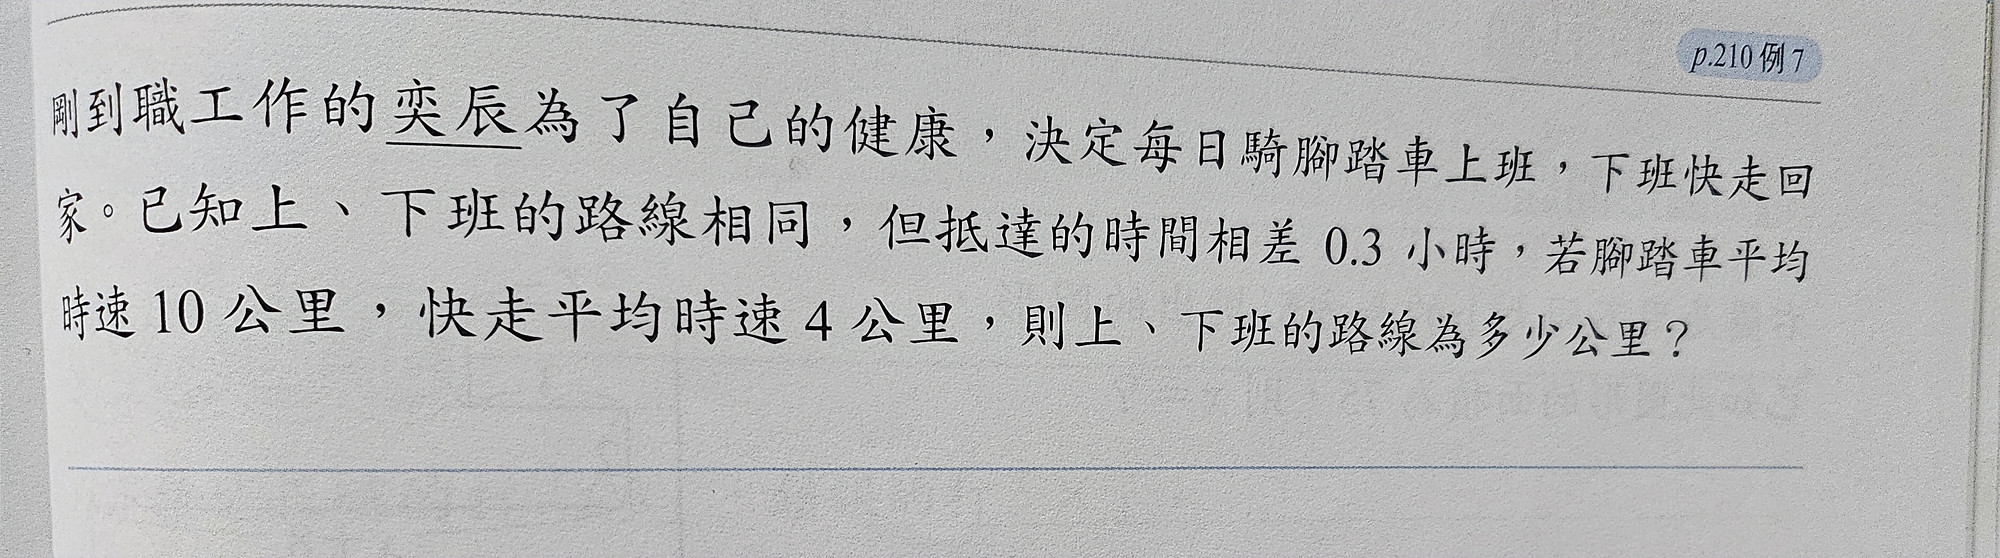 p.210 例 7
剛到職工作的奕辰為了自己的健康，決定每日騎腳踏車上班，下班快走回
家。已知上、下班的路線相同，但抵達的時間相差 0.3 小時，若腳踏車平均
時速 10 公里，快走平均時速 4 公里，則上、下班的路線為多少公里？